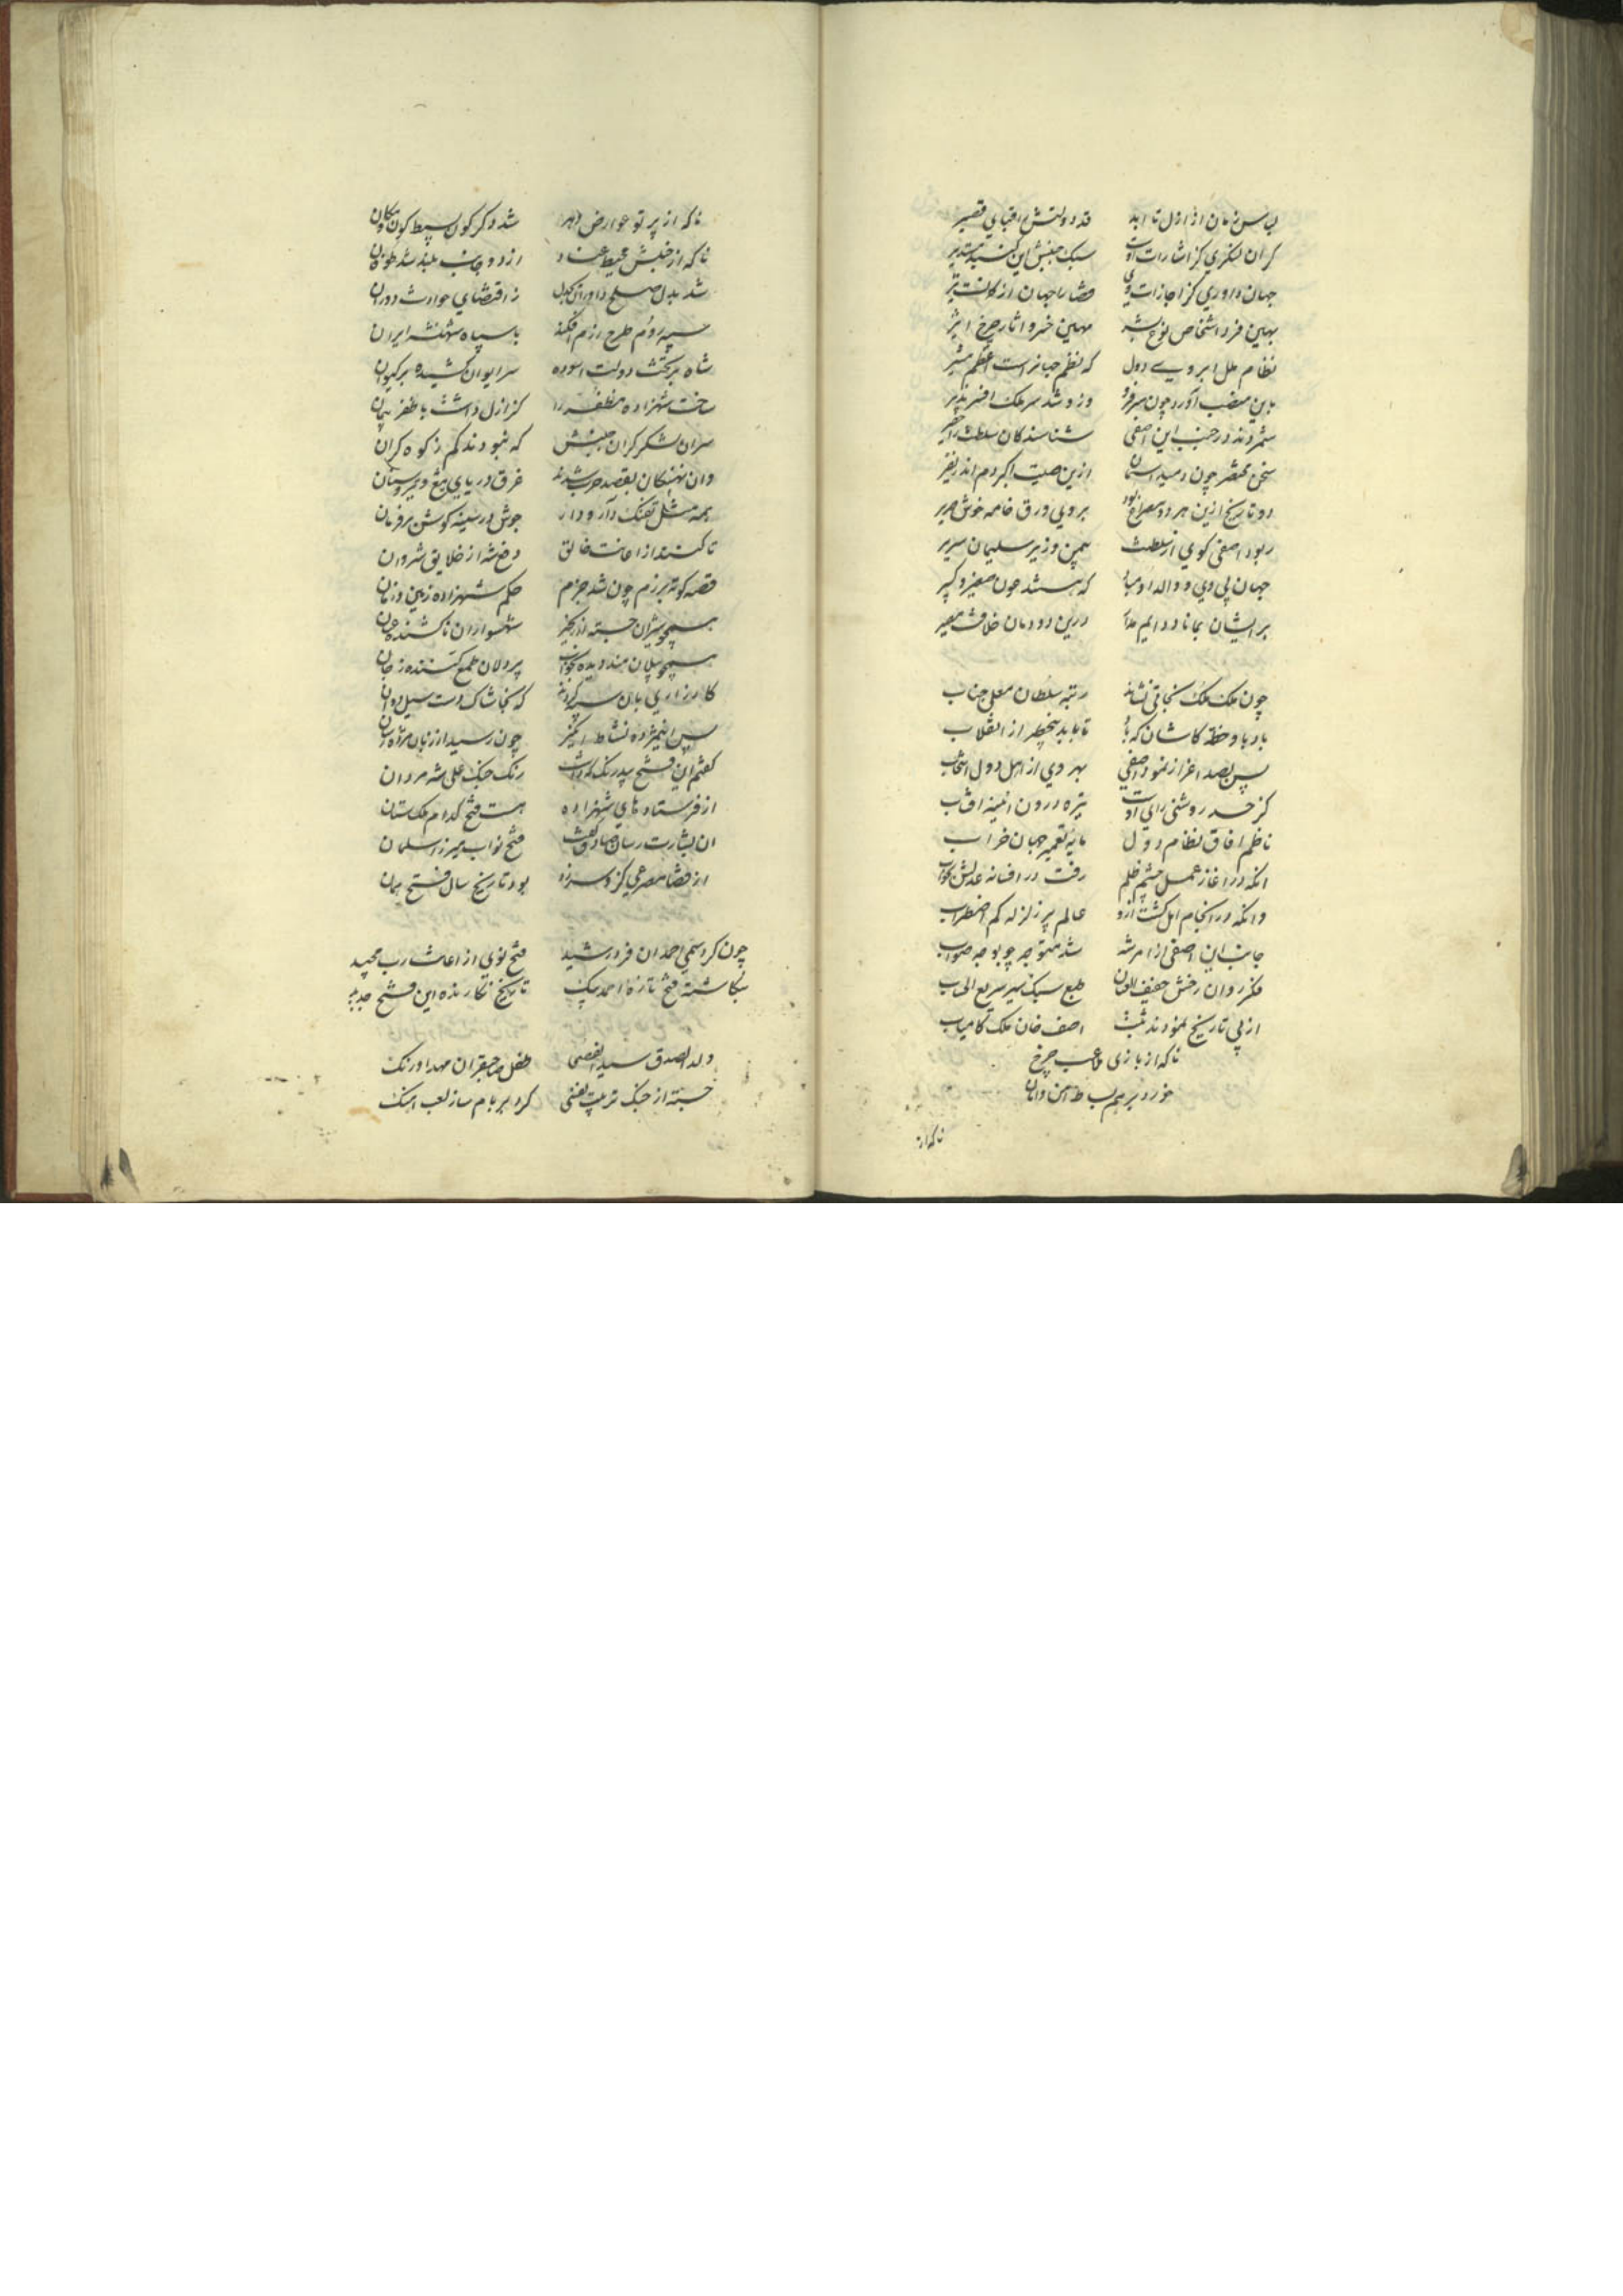 لباس زمان از ازل تا ابد قد دولتش را قبای قصیر
کران لنگری کز اشارات اوست سبک جنبش این گنبد مستدیر
جهان داوری کز اجازات وی قضا را جهان از کمانست تیر
بهین فرد اشخاص نوع بشر مهین خسرو اثار چرخ اثیر
نظام ملل ابروی دول که نظم جهانراست اعظم مشیر
باین منصب آورد چون سر فرو وزو شد سر ملک افسر پذیر
شمردند در جنب این اصفی شناسندگان سلطنت را حقیر
سخن مختصر چون رسید اسمان ازین صیت اکبر دم اندر نفیر
دو تاریخ ازین هر دو مصراع بود بروی ورق خامه خوش صریر
ربود اصفی کوی از سلطنت همین وزیر سلیمان سریر
جهان پی وی و والد او مباد که هستند چون صغیر و کبیر
بر ایشان بماناد دایم مدار درین دودمان خلافت مصیر
چون ملک ملک نجاتی نشاند رتبه سلطان معلی جناب
باد با و خطه کاشان که باد تا بابد بیخطر از انقلاب
پس بصد اعزاز نمود اصفی بهر وی از اهل دول انتخاب
کز حسد روشنی رای اوست تیره درون ائینه افتاب
ناظم افاق نظام دول مایه تعمیر جهان خراب
انکه در اغاز عمل چشم ظلم رفت در افسانه عدلش بخواب
وانکه در انجام امل گشت ازو عالم پر زلزله کم اضطراب
جانب این اصفی از امر شه شد متوجه چو بوجه صواب
فکر روان رخش خفیف العنان طبع سبک سیر سریع الی اب
از پی تاریخ نمودند ثبت اصف خان ملک کامیاب
ناکه از بازی لاعب چرخ
خورد بر هم بساط امن و امان
ناکه از
ناکه از پرتو عوارض دهر شد دگرگون بسیط کون و مکان
ناکه از جنبش محیط عناد از دو جانب بلند شد طوفان
شد بدل صلح داوران بجدل ز اقتضای حوادث دوران
سپه روم طرح رزم افکند با سپاه شهنشه ایران
شاه بر تخت دولت اسوده سر ایوان کشیده بر کیوان
ساخت شهزاده مظفر را کز ازل داشت با ظفر پیمان
سران لشکر گران جنبش که نبودند کم ز کوه گران
وان نهنگان بقصد حرب شدند غرق دریای تیغ و تیر و سنان
همه مثل تفنگ دار و دار جوش در سینه گوش بر فرمان
تا کنند از اعانت خالق دفع شه از خلایق شروان
قصه کوته برزم چون شد جزم حکم شهزاده زمین و زمان
همچو شیران جسته از زنجیر شهسواران تا کشنده عنان
همچو پیلان هند دیده بخواب پر دلان طمع کننده ز جان
کارزاری بان سپه کردند که بخاشاک دست سیل دمان
پس این مژده نشاط انگیز چون رسید از زبان مژده رسان
گفتم این فتح پدر نک که داشت رنگ جنگ علی شه مردان
از فرستاده های شهزاده هست فتح کدام ملک ستان
ان بشارت رسان صادق گفت فتح نواب میرزا سلمان
از قضا مصرعی کزو سر زد بود تاریخ سال فتح همان
چون کرد سمی احمد ان فرد رشید فتح نوی از اعانت رب مجید
بنگاشته فتح تازه احمد بیک تاریخ نگارنده این فتح جدید
ولد الصدق سیدالفصحی طفل صاحبقران مهد اورنگ
خسته از جنگ تربیت یعنی کرد بر بام ساز لعب اهنگ